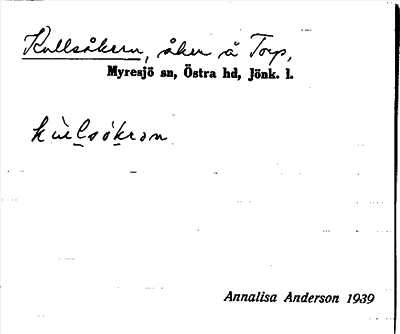 Kullsåkern, åker å Torp,
Myresjö sn, Östra hd, Jönk. l.
kùlsókran
Annalisa Anderson 1939